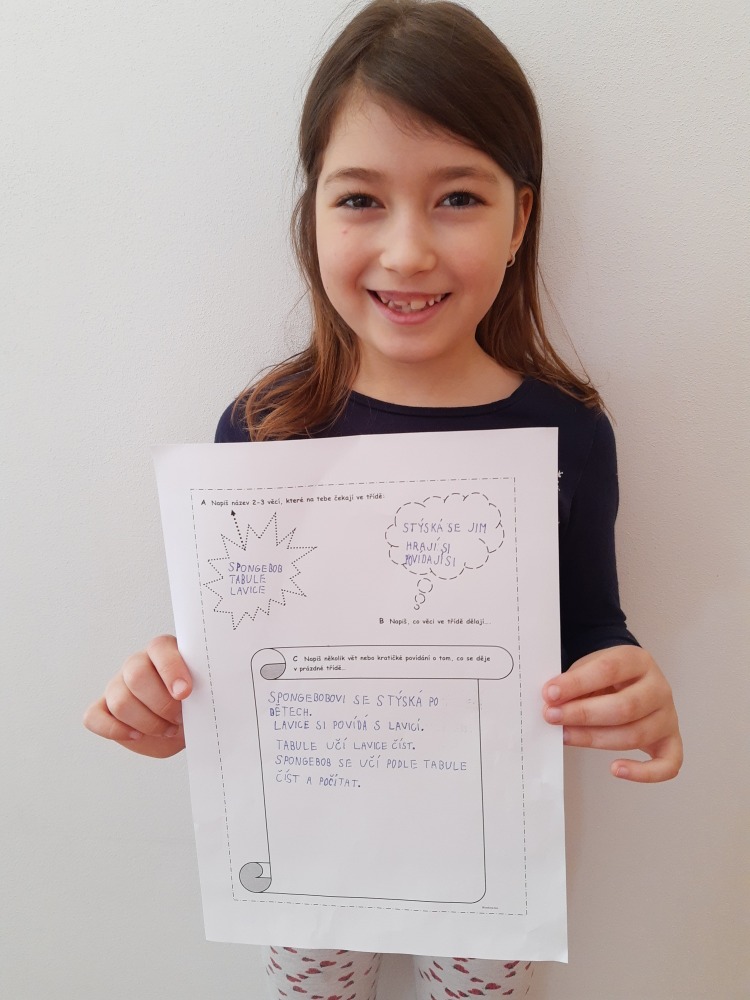 A Napiš název 2-3 věcí, které na tebe čekají ve třídě:
SPONGEBOB
TABULE
LAVICE
STÝSKÁ SE JIM
HRAJÍ SI
POVIDAJÍ SI
B Napiš, co věci ve třídě dělají...
C Napiš několik vět nebo kratičké povídání o tom, co se děje
v prázdné třídě...
SPONGEBOBOVI SE STÝSKÁ PO
DĚTECH.
LAVICE SI POVÍDÁ S LAVICÍ.
TABULE UČÍ LAVICE ČÍST.
SPONGEBOB SE UČÍ PODLE TABULE
ČÍST A POČÍTAT.